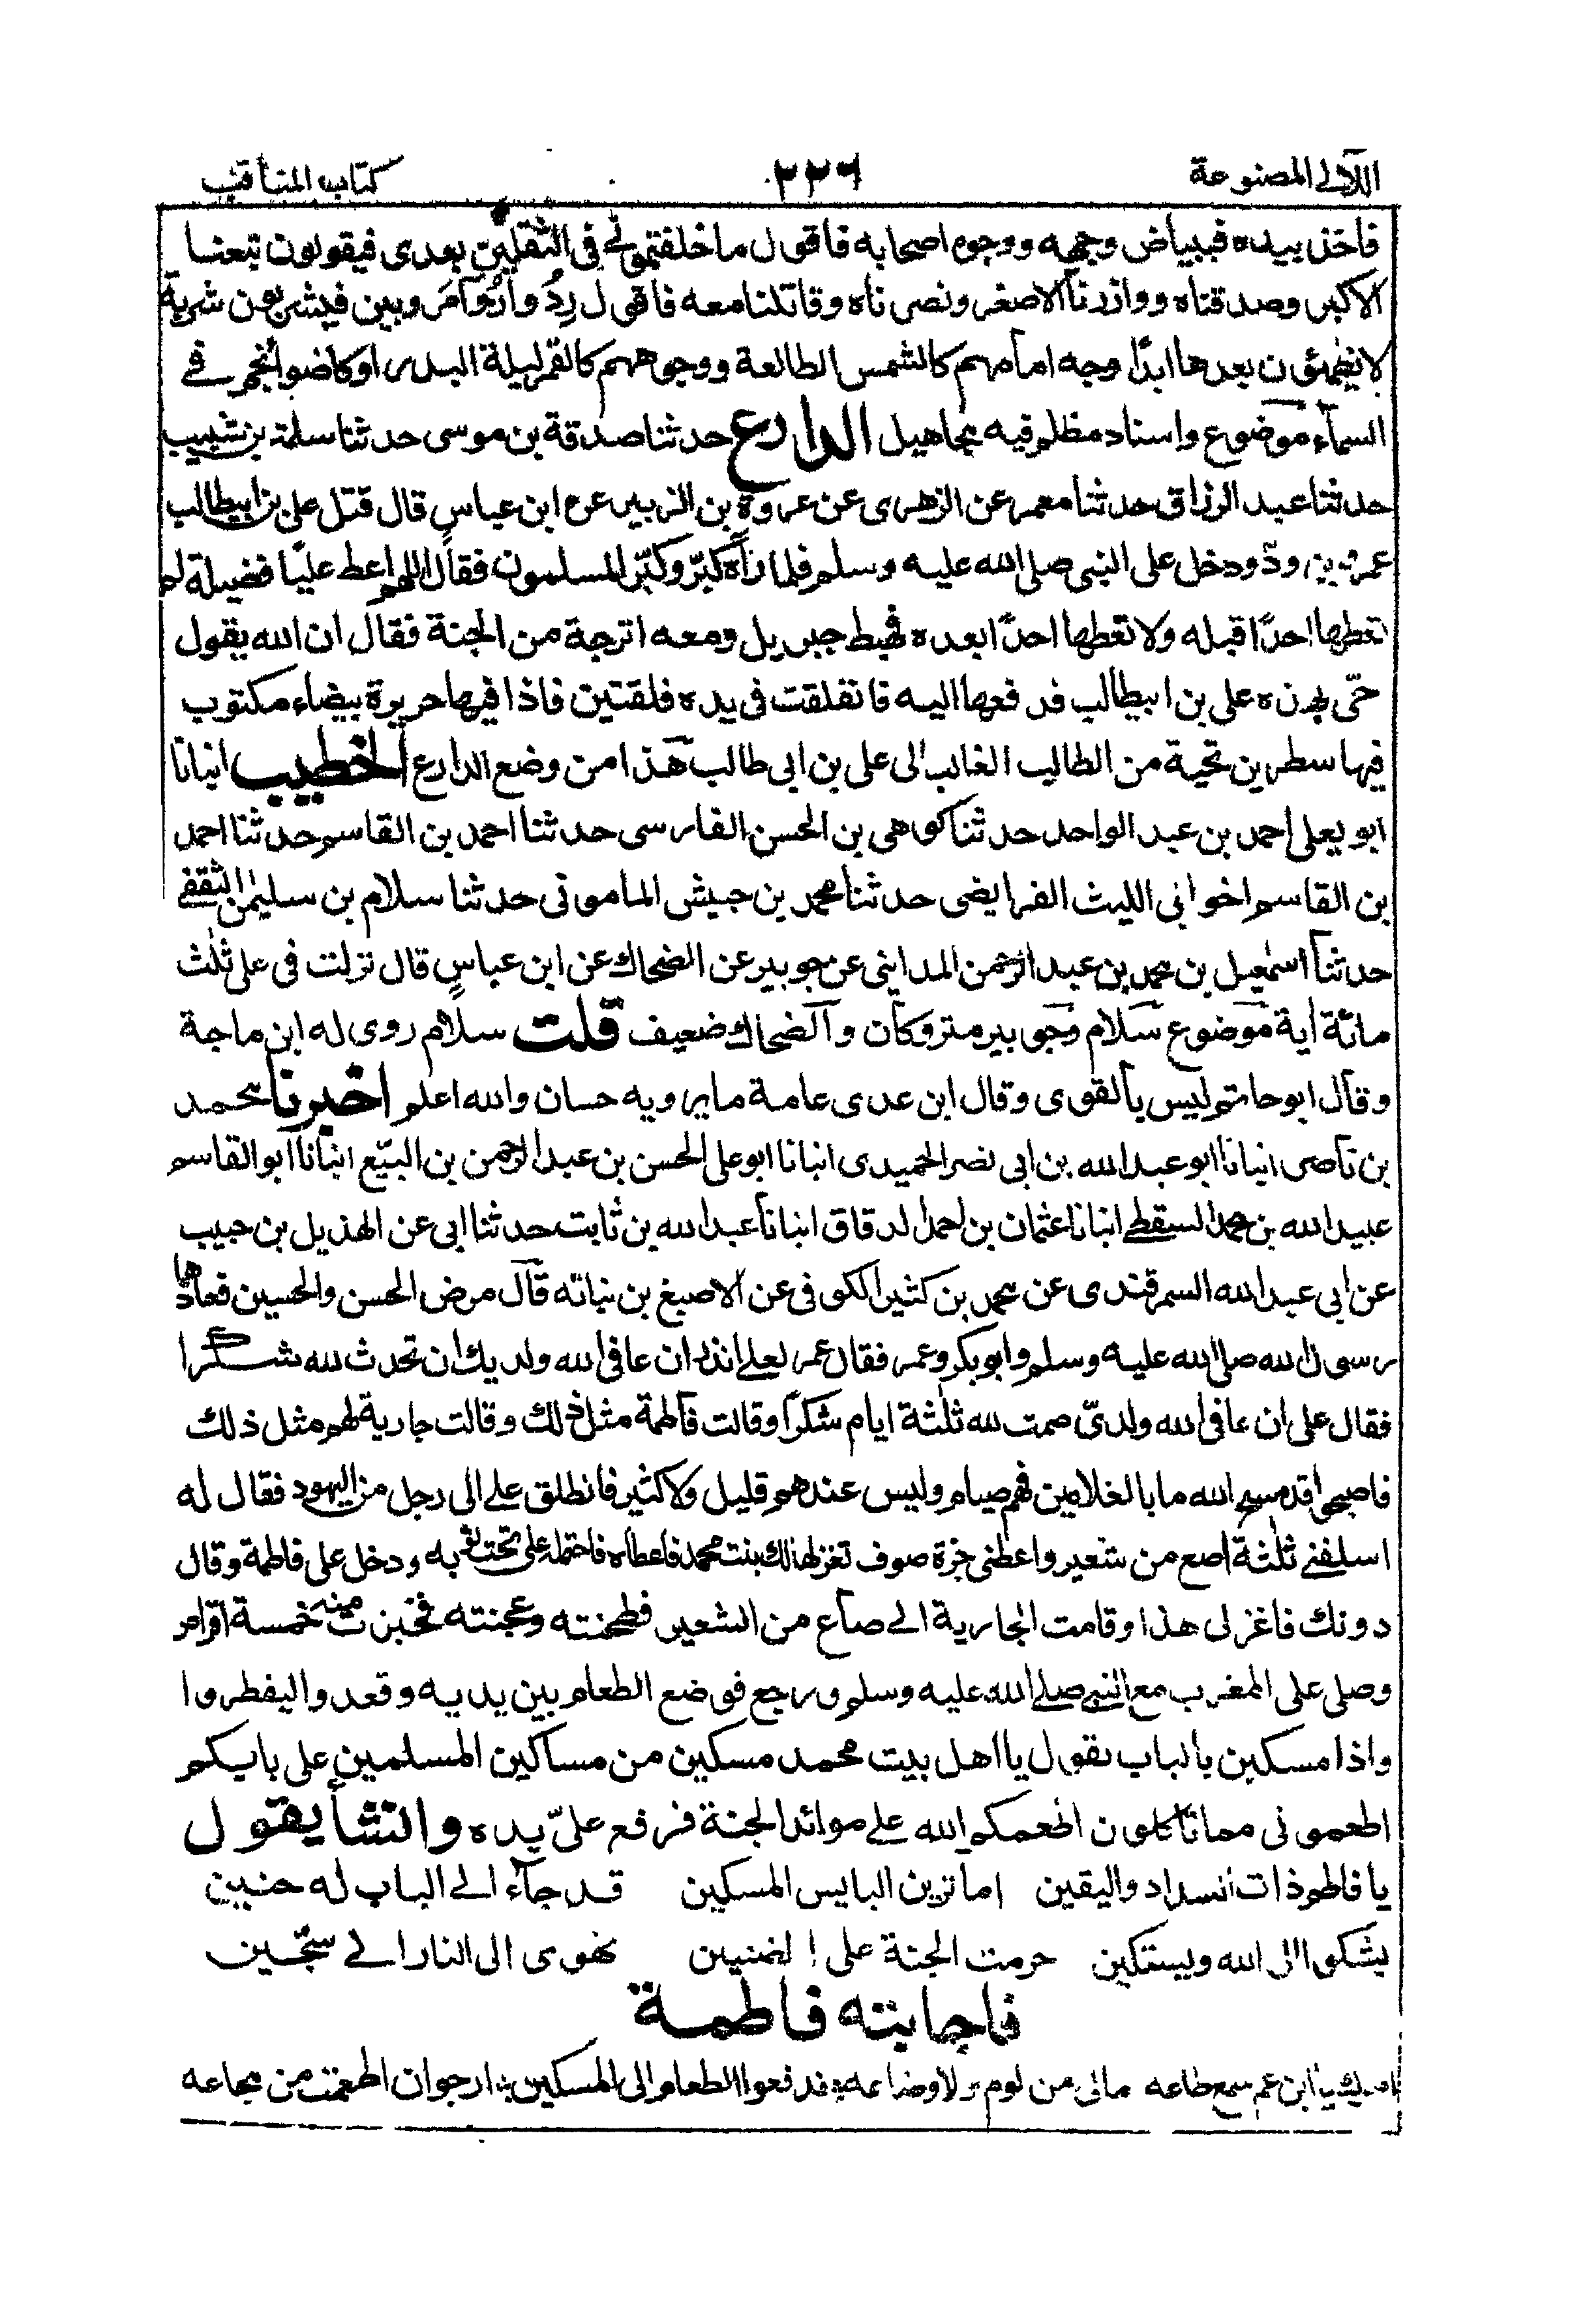 اللآلى المصنوعة ٢٢٦ كتاب المناقب
فاخذ بيده فيبياض وجهه ووجوه اصحابه فاقول ما خلفتمونى فى الثقلين بعدى فيقولون تبعنا
الاكبر وصدقناه ووازرنا الاصغر ونصرناه وقاتلنا معه فاقول رِدُوا رُوآءً مرويين فيشربون شربة
لا يظمئون بعدها ابدًا وجه امامهم كالشمس الطالعة ووجوههم كالقمر ليلة البدر او كاضوأ نجم فى
السمآء موضوع واسناد مظلم فيه مجاهيل الدارع حدثنا صدقة بن موسى حدثنا سلمة بن شبيب
حدثنا عبد الرزاق حدثنا معمر عن الزهرى عن عروة بن الزبير عن ابن عباسٍ قال قتل على بن ابيطالب
عمرو بن ودّ ودخل على النبى صلى الله عليه وسلم فلما رآه كبّر وكبّر المسلمون فقال اللهم اعط عليًا فضيلة لم
تعطها احدًا قبله ولا تعطها احدًا بعده فهبط جبريل ومعه اترجة من الجنة فقال ان الله يقول
حيّ بهذه على بن ابيطالب فدفعها اليه فانفلقت فى يده فلقتين فاذا فيها حريرة بيضاء مكتوب
فيها سطرين تحية من الطالب الغالب الى على بن ابى طالب هذا من وضع الدارع الخطيب انبانا
ابو يعلى احمد بن عبد الواحد حدثنا كوهى بن الحسن الفارسى حدثنا احمد بن القاسم حدثنا احمد
بن القاسم اخو ابى الليث الفرايضى حدثنا محمد بن حبيش المامونى حدثنا سلام بن سليمٰن الثقفى
حدثنا اسمٰعيل بن محمد بن عبد الرحمن المداينى عن جويبر عن الضحاك عن ابن عباسٍ قال نزلت فى على ثلٰث
مائة آية موضوع سلام وجويبر متروكان والضحاك ضعيف قلت سلام روى له ابن ماجة
وقال ابو حاتم ليس بالقوى وقال ابن عدى عامة ما يرويه حسان والله اعلم اخبرنا محمد
بن ناصر انبانا ابو عبد الله بن ابى نصر الحميدى انبانا ابو على الحسن بن عبد الرحمن بن البيّع انبانا ابو القاسم
عبيد الله بن محمد السقطى انبانا عثمان بن احمد الدقاق انبانا عبد الله بن ثابت حدثنا ابى عن الهذيل بن حبيب
عن ابى عبد الله السمرقندى عن محمد بن كثير الكوفى عن الاصبغ بن نباته قال مرض الحسن والحسين فعادهما
رسول الله صلى الله عليه وسلم وابو بكر وعمر فقال عمر لعلى انذر ان عافى الله ولديك ان تحدث لله شكرا
فقال على ان عافى الله ولدىّ صمت لله ثلٰثة ايام شكرًا وقالت فاطمة مثل ذلك وقالت جارية لهم مثل ذلك
فاصبحوا قد مسح الله ما بالغلامين فهم صيام وليس عندهم قليل ولا كثير فانطلق على الى رجل من اليهود فقال له
اسلفنى ثلٰثة آصع من شعير واعطنى جزة صوف تغزلها لك بنت محمد فاعطاه فاحتمله على تحت ثوبه ودخل على فاطمة وقال
دونك فاغزلى هذا وقامت الجارية الى صاع من الشعير فطحنته وعجنته فخبزت منه خمسة اقراص
وصلى على المغرب مع النبى صلى الله عليه وسلم ورجع فوضع الطعام بين يديه وقعدوا ليفطروا
واذا مسكين بالباب يقول يا اهل بيت محمد مسكين من مساكين المسلمين على بابكم
اطعمونى مما تاكلون اطعمكم الله على موائد الجنة فرفع علىّ يده وانشأ يقول
يا فاطم ذات السداد واليقين اما ترين البايس المسكين قد جآء الى الباب له حنين
يشكو الى الله ويستكين حرمت الجنة على الضنين تهوى الى النار الى سجّين
فاجابته فاطمة
يا ابن عم سمع طاعه مالى من لوم ولا وضاعه فدفعوا الطعام الى المسكين ارجو ان اطعمت من مجاعه